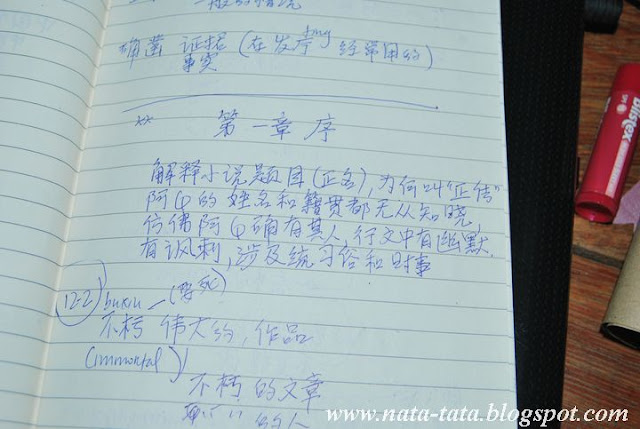 一般的情况
确凿 证据 (在发言 经常用的)
事实
** 第一章 序
解释小说题目(正名),为何叫"正传"
阿Q的姓名和籍贯都无从知晓,
仿佛阿Q确有其人,行文中有幽默.
有讽刺,涉及统习俗和时事
122)
不朽 伟大的,作品
(immortal)
不朽 的文章
的人
Blistex
www.nata-tata.blogspot.com